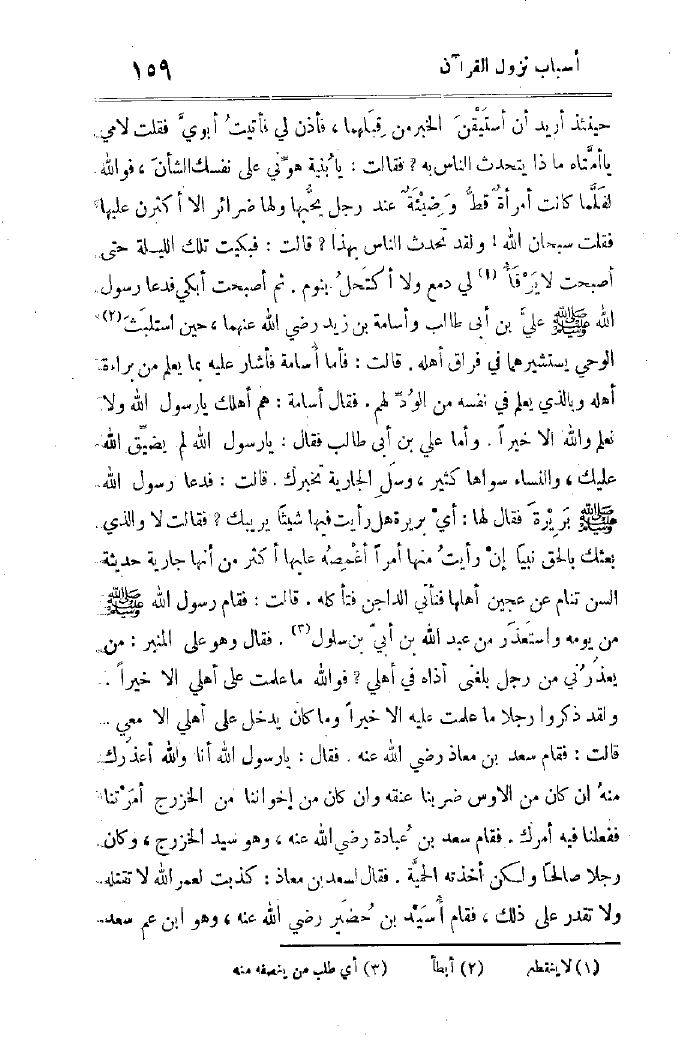 أسباب نزول القرآن ١٥٩
حينئذ أريد أن أستَيْقنَ الخبر من قِبَلهما ، فأذن لي فأتيتُ أبويَّ فقلت لامي
ياأمَّتاه ما ذا يتحدث الناس به ? فقالت : يابُنية هوِّني على نفسك الشأن ، فوالله
لقلَّما كانت أمرأةٌ قطُّ وَضِيْئَةٌ عند رجل يحبُّها ولها ضرائر الا أكثرن عليها
فقلت سبحان الله ! ولقد تحدث الناس بهذا ? قالت : فبكيت تلك الليلة حتى
أصبحت لا يَرْقَأُ (١) لي دمع ولا أكتحلُ بنوم . ثم أصبحت أبكي فدعا رسول
الله ﷺ عليَّ بن أبى طالب وأسامة بن زيد رضي الله عنهما ، حين استلبثَ (٢)
الوحي يستشيرهما في فراق أهله . قالت : فأما أُسامة فأشار عليه بما يعلم من براءة
أهله وبالذي يعلم في نفسه من الوُدِّ لهم . فقال أسامة : هم أهلك يارسول الله ولا
نعلم والله الا خيراً . وأما علي بن أبى طالب فقال : يارسول الله لم يضيِّق الله
عليك ، والنساء سواها كثير ، وسَل الجارية تخبرك . قالت : فدعا رسول الله
ﷺ بَرِيْرةَ فقال لها : أيْ بريرة هل رأيت فيها شيئا يريبك ? فقالت لا والذي
بعثك بالحق نبيا إنْ رأيتُ منها أمراً أغْمِصُه عليها أكثر من أنها جارية حديثة
السن تنام عن عجين أهلها فتأتي الداجن فتأكله . قالت : فقام رسول الله ﷺ
من يومه واستعذر من عبد الله بن أبيّ بن سلول (٣) . فقال وهو على المنبر : من
يعذرُني من رجل بلغنى أذاه في أهلي ? فوالله ما علمت على أهلي الا خيراً .
ولقد ذكروا رجلا ما علمت عليه الا خيراً وما كان يدخل على أهلي الا معي .
قالت : فقام سعد بن معاذ رضي الله عنه . فقال : يارسول الله أنا والله أعذرك
منهُ ان كان من الاوس ضربنا عنقه وان كان من إخواننا من الخزرج أمرْتنا
ففعلنا فيه أمرك . فقام سعد بن عُبادة رضي الله عنه ، وهو سيد الخزرج ، وكان
رجلا صالحا ولكن أخذته الحميَّة . فقال لسعد بن معاذ : كذبت لعمر الله لا تقتله
ولا تقدر على ذلك ، فقام أُسَيْد بن حُضَير رضي الله عنه ، وهو ابن عم سعد
(١) لا ينقطع (٢) أبطأ (٣) أي طلب من ينصفه منه